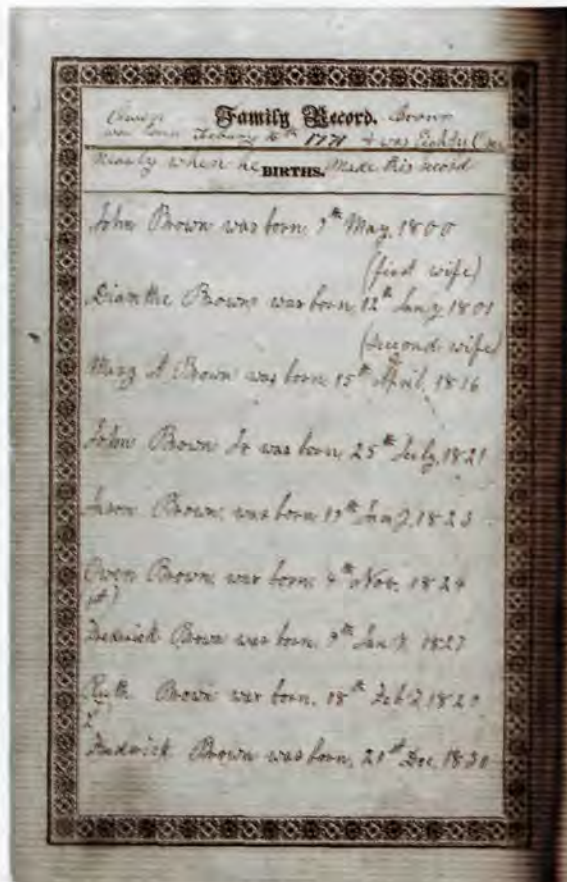 Owen Family Record. Brown
was born Febuary 16th 1771 & was Eighty One
nearly when he made this record
BIRTHS.
John Brown was born, 9th May, 1800
(first wife)
Dianthe Brown was born, 12th Jany 1801
(second wife)
Mary A Brown was born, 15th April, 1816
John Brown Jr was born, 25th July, 1821
Jason Brown, was born 19th Jany, 1823
Owen Brown, was born, 4th Nov, 1824
Frederick Brown was born, 9th Jany, 1827
Ruth Brown was born, 18th Feby, 1829
Fredrick Brown was born, 21st Dec, 1830